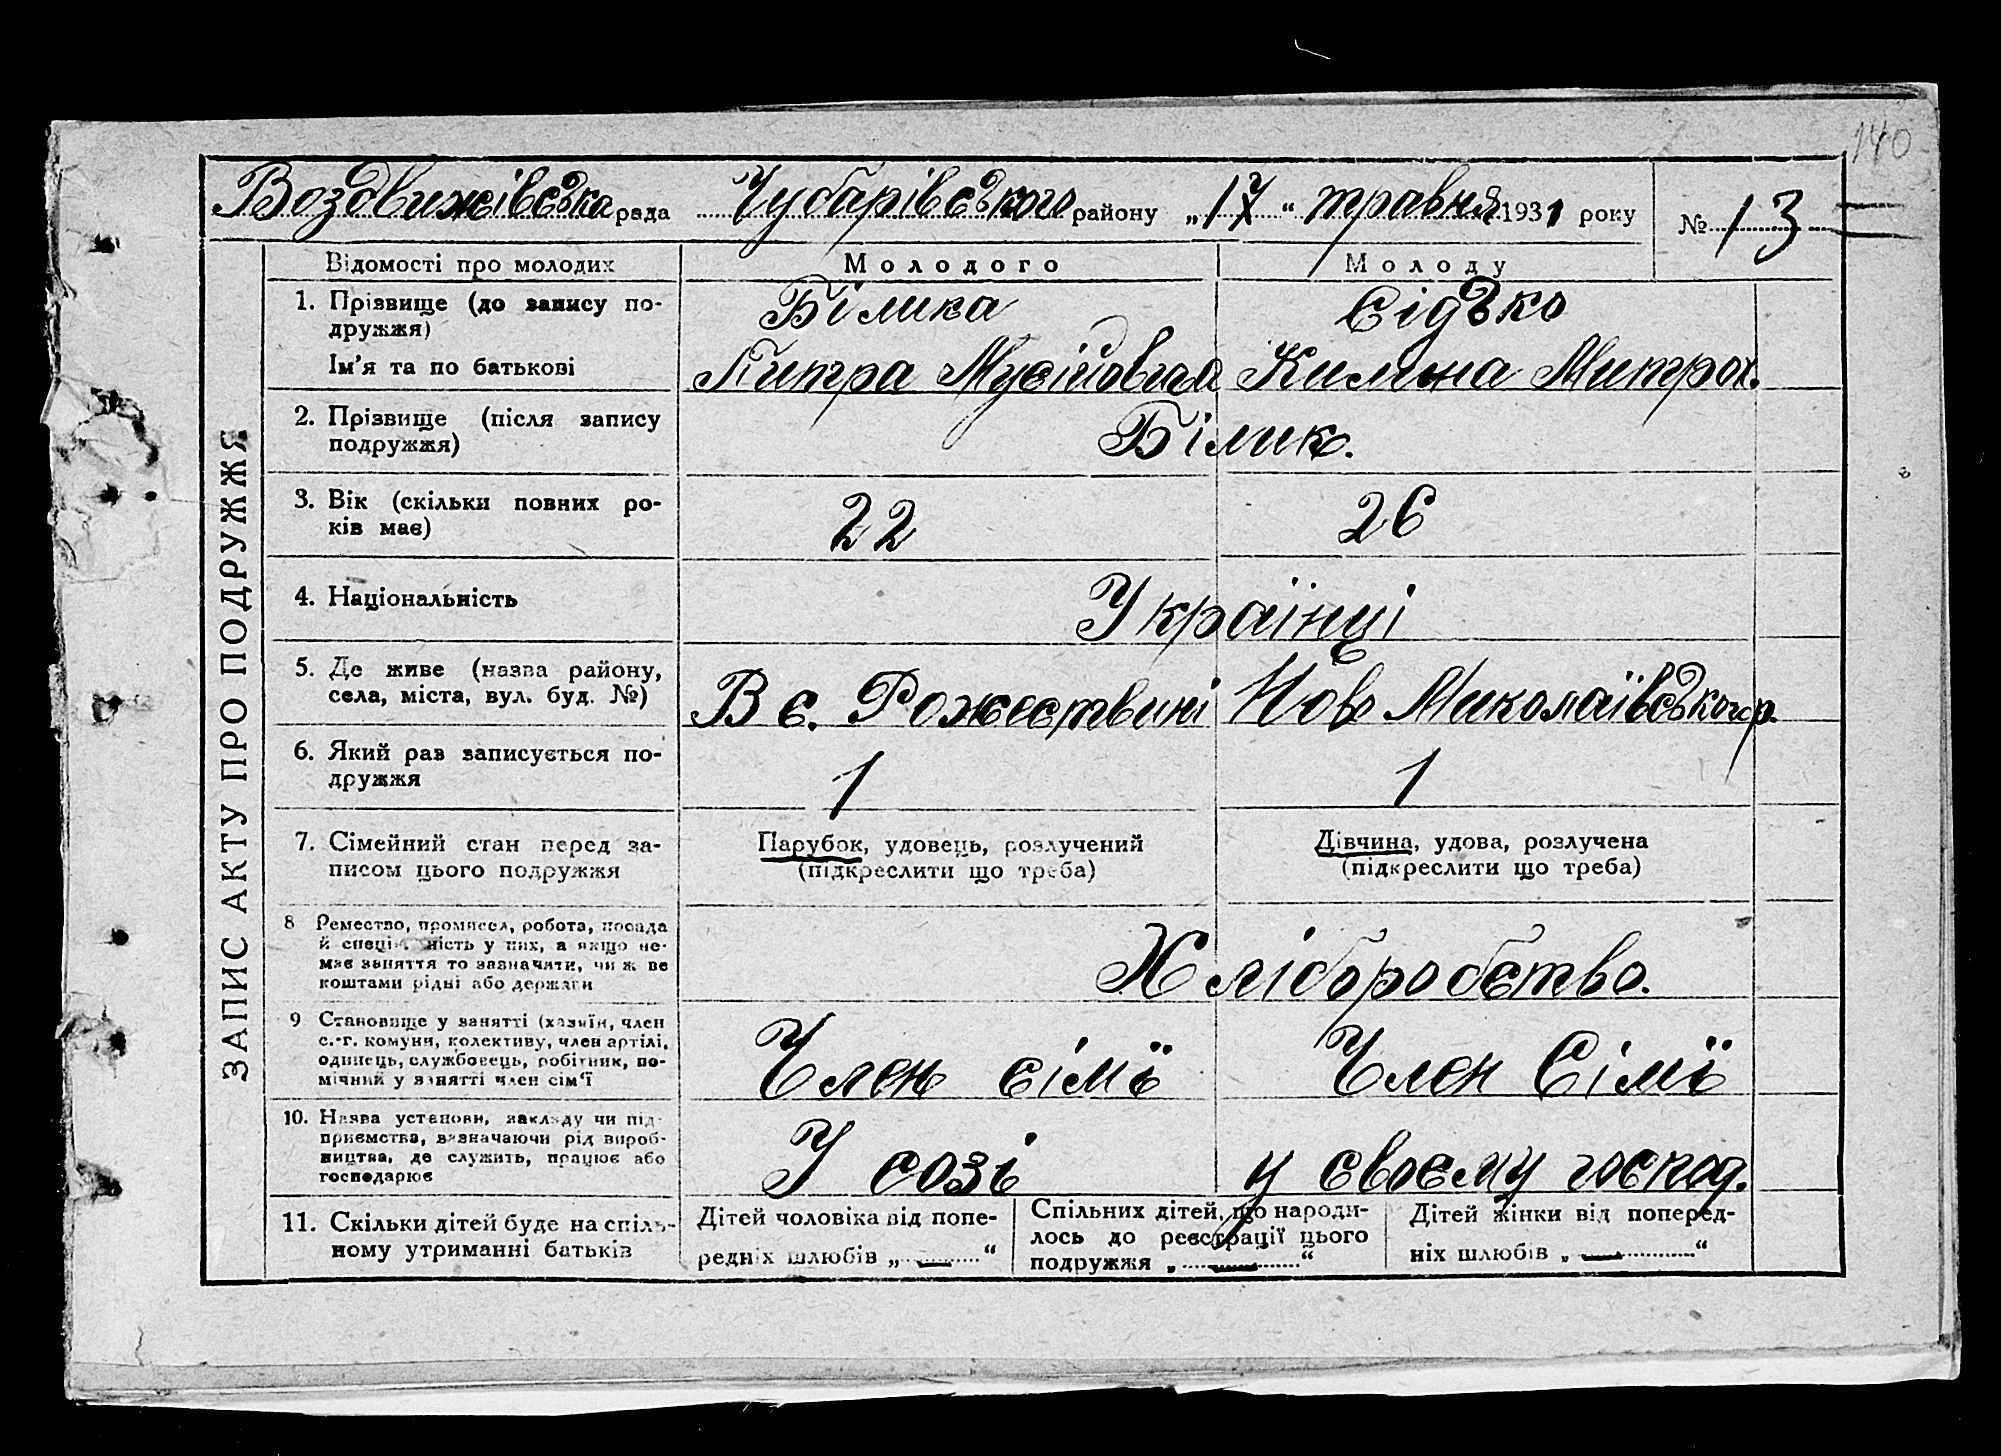 140
Воздвижівська рада Чубарівського району „17“ травня 1931 року № 13
ЗАПИС АКТУ ПРО ПОДРУЖЖЯ
Відомості про молодих Молодого Молоду
1. Прізвище (до запису по-
дружжя) Білика Сідько
Ім'я та по батькові Митра Мусійовича Килина Митроx.
2. Прізвище (після запису
подружжя) Білик.
3. Вік (скільки повних ро-
ків має) 22 26
4. Національність Українці
5. Де живе (назва району,
села, міста, вул. буд. №) В с. Рожествині Ново Миколаївського р.
6. Який раз записується по-
дружжя 1 1
7. Сімейний стан перед за-
писом цього подружжя
Парубок, удовець, розлучений
(підкреслити що треба)
Дівчина, удова, розлучена
(підкреслити що треба)
8 Ремество, промисел, робота, посада
й спеціяльність у них, а якщо не-
має заняття то зазначити, чиїми
коштами рідні або держави
Хліборобство.
9 Становище у занятті (хазяїн, член
с.-г. комуни, колективу, член артілі,
одинець, службовець, робітник, по-
мічний у занятті член сім'ї
Член сімї Член Сімї
10. Назва установи, закладу чи під-
приємства, зазначаючи рід вироб-
ництва, де служить, працює або
господарює
У созі у своєму господ.
11. Скільки дітей буде на спіль-
ному утриманні батьків
Дітей чоловіка від попе-
редніх шлюбів „ — “
Спільних дітей, що народи-
лось до реєстрації цього
подружжя „ — “
Дітей жінки від поперед-
ніх шлюбів „ — “